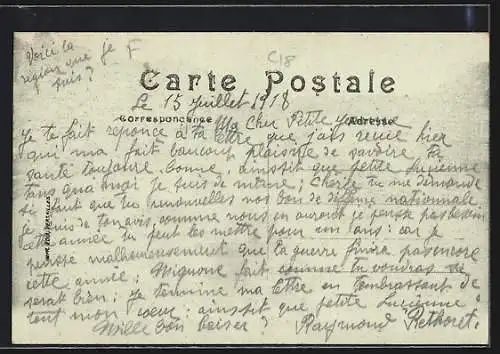 Voici la
région que je F
suis ?
C18
Carte Postale
Le 15 juillet 1918
Correspondance
Adresse
Ma Cher Petite
Je te fait réponce à ta lettre que j'ais reçue hier
qui ma fait baucoup plaisire de savoire ta
santé toujours bonne, ainssit que petite Lucienne
tans qua moi je suis de même ; Cherie tu me demande
si faut que tu renouvelles nos bon de défence nationale
je suis de ton avis, comme nous en auront je pense pas besoin
cette année tu peut les mettre pour un ans : car je
pensse malheureusement que la guerre finira pas encore
cette année ; Mignone fait comme tu voudras se
serat bien ; Je termine ma lettre en t'embrassant de
tout mon cœur : ainssit que petite Lucienne
Mille bon baiser ? Raymond Rethoret.